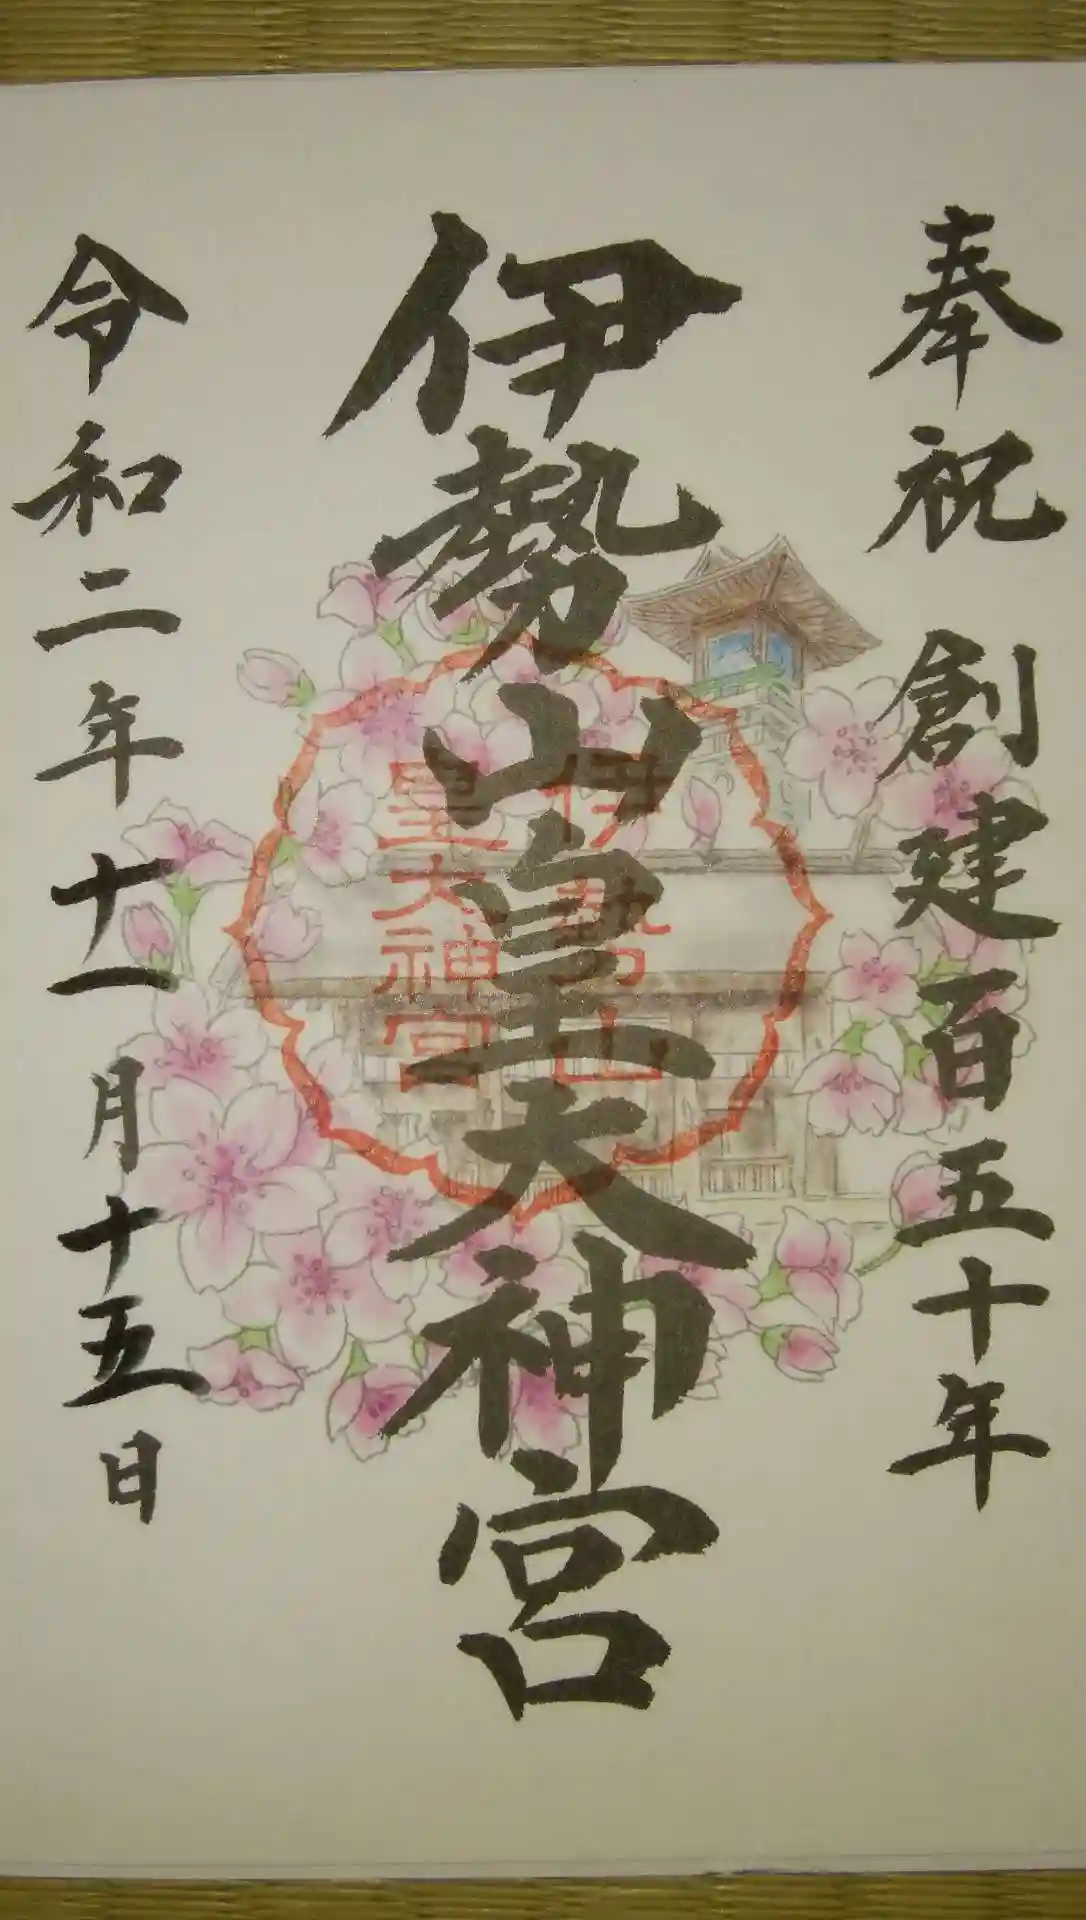 奉祝 創建百五十年
伊勢山皇大神宮
伊勢山
皇大神宮
令和二年十一月十五日